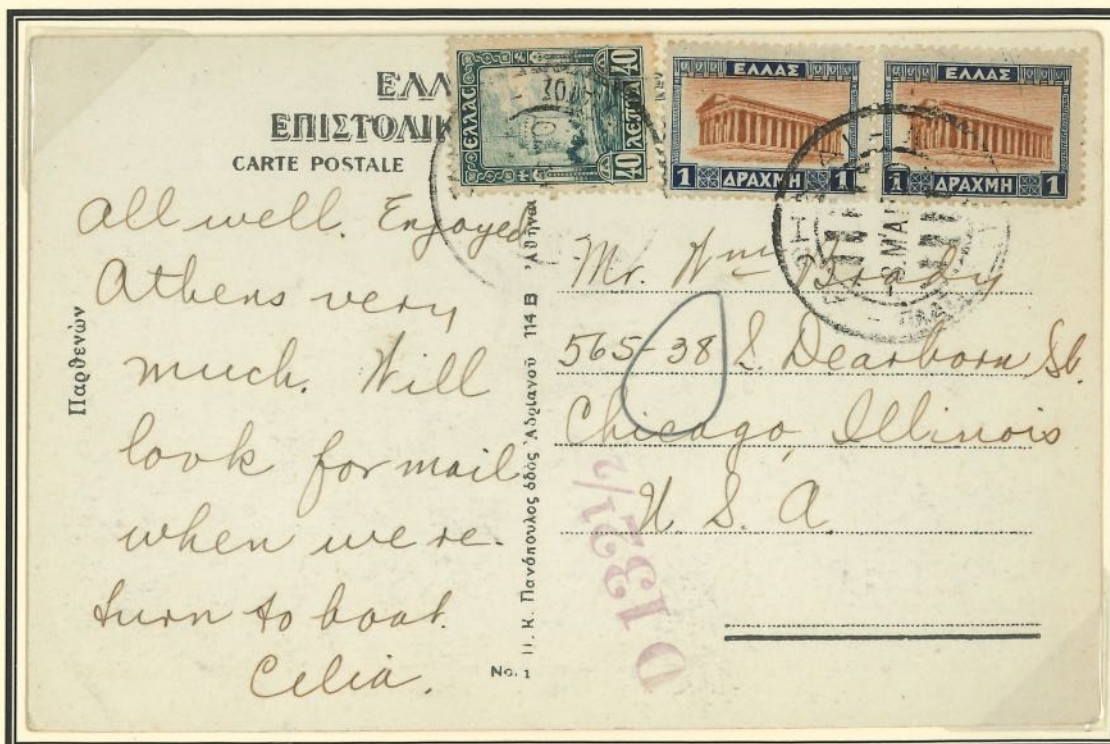 ΕΛΛ
ΕΠΙΣΤΟΛΙΚ
CARTE POSTALE
ΕΛΛΑΣ
40 ΛΕΠΤΑ 40
ΕΛΛΑΣ
1 ΔΡΑΧΜΗ 1
ΕΛΛΑΣ
1 ΔΡΑΧΜΗ 1
All well. Enjoyed
Athens very
much. Will
look for mail
when we re-
turn to boat.
Celia.
Παρθενών
Π. Κ. Πανόπουλος ὁδὸς Ἀδριανοῦ 114 Β Ἀθῆναι
No. 1
Mr. Wm Brady
565-38 S. Dearborn St.
Chicago, Illinois
U. S. A.